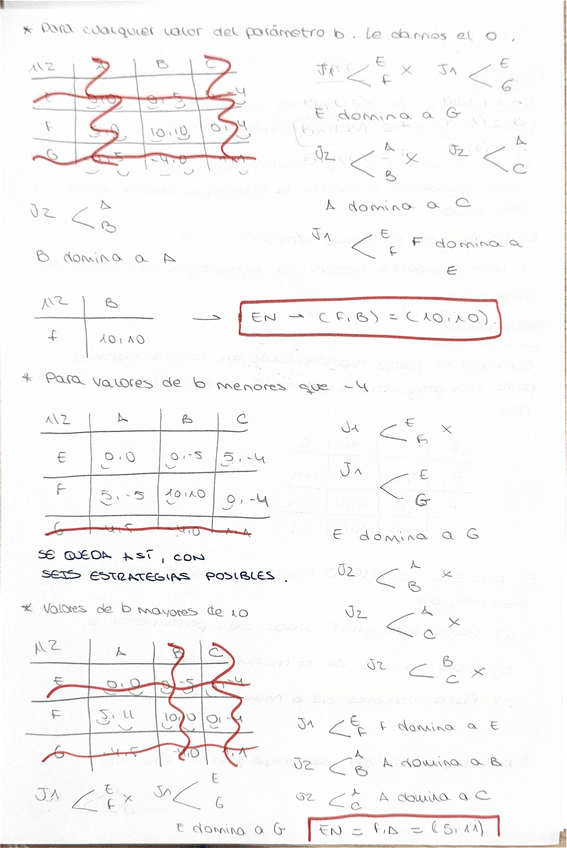 * Para cualquier valor del parámetro b. Le damos el 0.
1\2 A B C
E 0,0 0,-5 -4
F 5,0 10,10 0,-4
G -4,5 -4,0 1,1
J1 < E F X J1 < E G
E domina a G
J2 < A B X J2 < A C
A domina a C
J2 < A B
B domina a A
J1 < E F F domina a
E
1\2 B
f 10,10
→ EN → (F,B) = (10,10).
* Para valores de b menores que -4
1\2 A B C
E 0,0 0,-5 5,-4
F 5,-5 10,10 0,-4
G -4,5 -4,0 1,1
J1 < E F X
J1 < E G
E domina a G
SE QUEDA ASÍ, CON
SEIS ESTRATEGIAS POSIBLES.
J2 < A B X
J2 < A C X
J2 < B C X
* Valores de b mayores de 10
1\2 A B C
E 0,0 0,-5 -4
F 5,11 10,10 0,-4
G -4,5 -4,0 1,1
J1 < E F F domina a E
J2 < A B A domina a B
J2 < A C A domina a C
J1 < E F X J1 < E G
E domina a G
EN = F,A = (5,11)